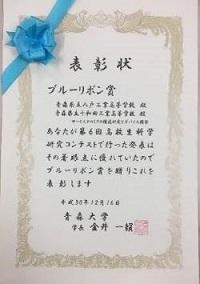 表彰状
ブルーリボン賞
青森県立八戸工業高等学校 殿
青森県立十和田工業高等学校 殿
あなたが第6回高校生科学
研究コンテストで行った発表は
その着眼点に優れていたので
ブルーリボン賞を贈りこれを
表彰します
平成30年12月16日
青森大学
学長 金井一賴